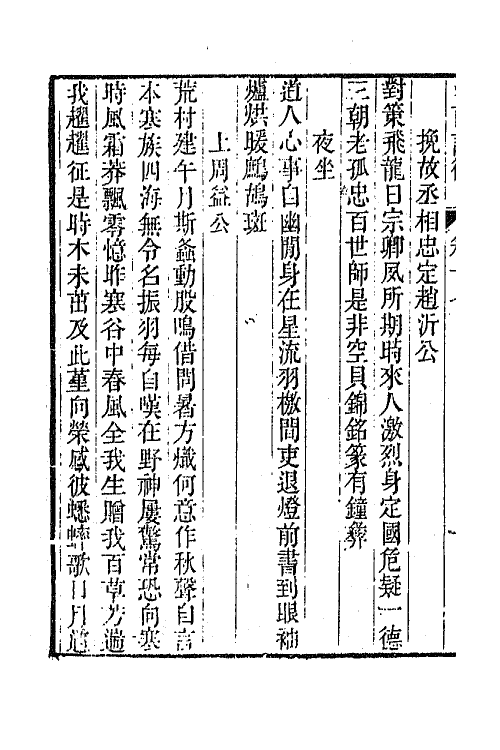 挽故丞相忠定趙沂公
對策飛龍日宗卿夙所期時來人激烈身定國危疑一德
三朝老孤忠百世師是非空貝錦銘篆有鐘彜
夜坐
道人心事自幽閒身在星流羽檄間吏退燈前書到眼袖
爐烘暖鷓鴣斑
上周益公
荒村建午月斯螽動股鳴借問暑方熾何意作秋聲自言
本寒族四海無令名振羽每自嘆在野神屢驚常恐向寒
時風霜莽飄零憶昨寒谷中春風全我生贈我百草芳遄
我趯趯征是時木未茁及此堇向榮感彼蟋蟀歌日月遒